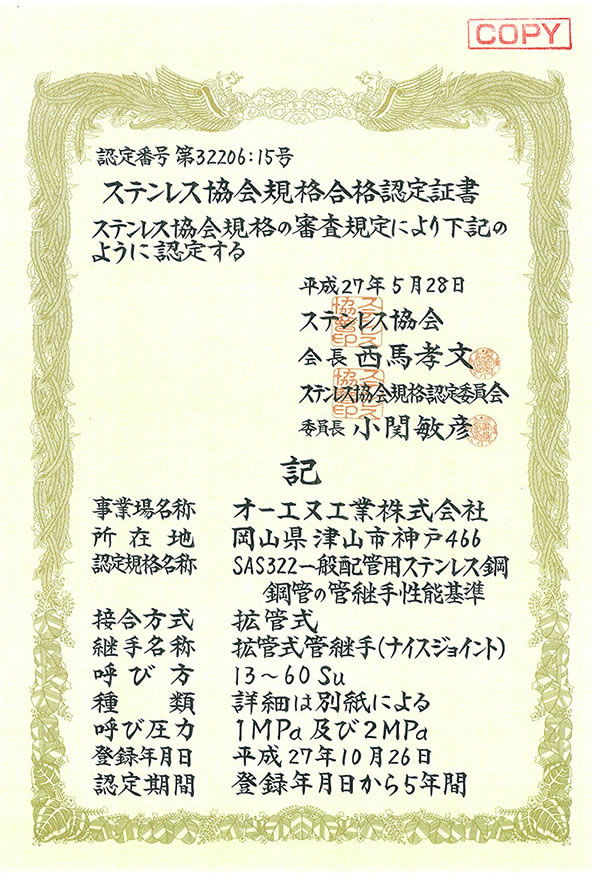 COPY
認定番号 第32206:15号
ステンレス協会規格合格認定証書
ステンレス協会規格の審査規定により下記の
ように認定する
平成27年5月28日
ステンレス協会
会長 西馬孝文
ステンレス協会規格認定委員会
委員長 小関敏彦
記
事業場名称 オーエヌ工業株式会社
所在地 岡山県津山市神戸466
認定規格名称 SAS322一般配管用ステンレス鋼
鋼管の管継手性能基準
接合方式 拡管式
継手名称 拡管式管継手(ナイスジョイント)
呼び方 13~60Su
種類 詳細は別紙による
呼び圧力 1MPa及び2MPa
登録年月日 平成27年10月26日
認定期間 登録年月日から5年間